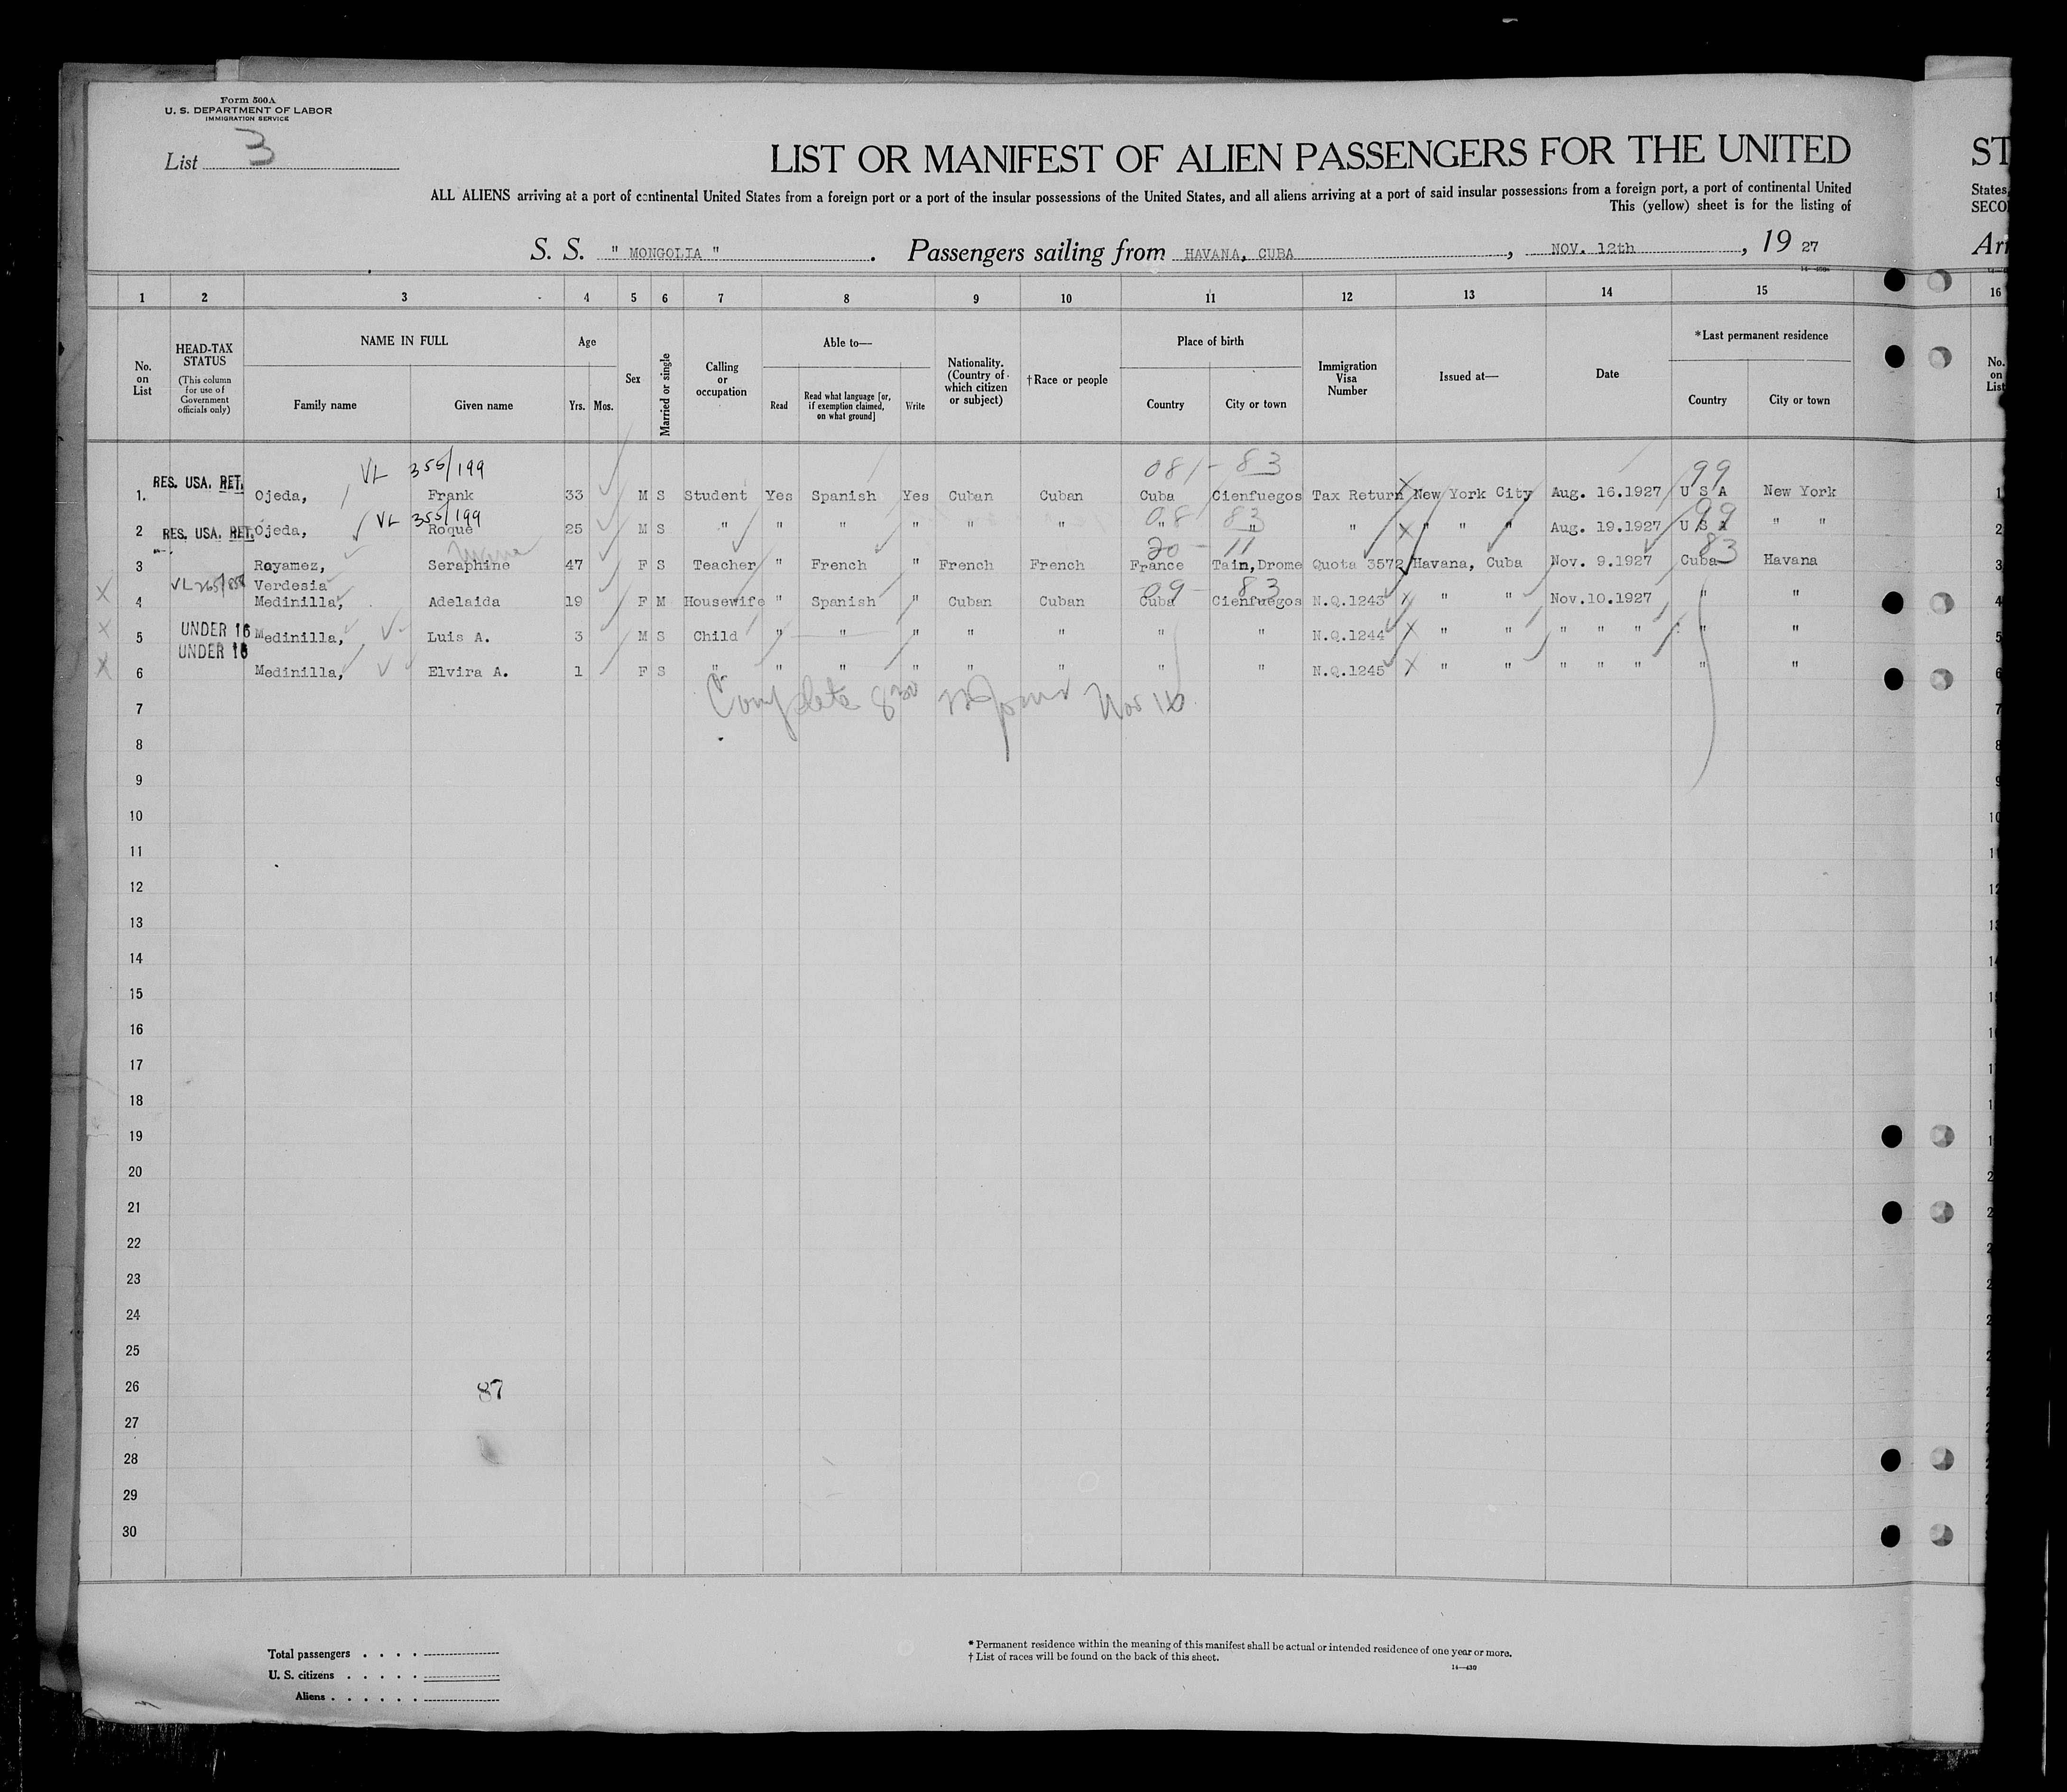 Form 500A
U. S. DEPARTMENT OF LABOR
IMMIGRATION SERVICE
List 3
LIST OR MANIFEST OF ALIEN PASSENGERS FOR THE UNITED
ST
ALL ALIENS arriving at a port of continental United States from a foreign port or a port of the insular possessions of the United States, and all aliens arriving at a port of said insular possessions from a foreign port, a port of continental United
States,
This (yellow) sheet is for the listing of
SECO
S. S. " MONGOLIA " . Passengers sailing from HAVANA, CUBA , NOV. 12th , 19 27
Arr
1 2 3 4 5 6 7 8 9 10 11 12 13 14 15 16
No. on List
HEAD-TAX STATUS
(This column for use of Government officials only)
NAME IN FULL
Family name
Given name
Age
Yrs. Mos.
Sex
Married or single
Calling or occupation
Able to—
Read
Read what language [or, if exemption claimed, on what ground]
Write
Nationality. (Country of which citizen or subject)
†Race or people
Place of birth
Country
City or town
Immigration Visa Number
Issued at—
Date
*Last permanent residence
Country
City or town
No. on List
VL 355/199 081 - 83 99
RES. USA. RET.
1. Ojeda, Frank 33 M S Student Yes Spanish Yes Cuban Cuban Cuba Cienfuegos Tax Return New York City Aug. 16.1927 U S A New York 1
VL 355/199 08 83 99
2 RES. USA. RET. Ojeda, Roque 25 M S " " " " " " " " " " " " Aug. 19.1927 U S A " " 2
20 - 11 83
3 Royamez, Seraphine 47 F S Teacher " French " French French France Tain,Drome Quota 3572 Havana, Cuba Nov. 9.1927 Cuba Havana 3
Verdesia
09 - 83
4 Medinilla, Adelaida 19 F M Housewife " Spanish " Cuban Cuban Cuba Cienfuegos N.Q.1243 " " Nov.10.1927 " " 4
UNDER 16
5 Medinilla, Luis A. 3 M S Child " " " " " " " N.Q.1244 " " " " " " " 5
UNDER 16
6 Medinilla, Elvira A. 1 F S " " " " " " " " N.Q.1245 " " " " " " " 6
Complete 8 30 Nov 16
7
8
9
10
11
12
13
14
15
16
17
18
19
20
21
22
23
24
25
26 87
27
28
29
30
Total passengers . . . .
U. S. citizens . . . . .
Aliens . . . . . .
* Permanent residence within the meaning of this manifest shall be actual or intended residence of one year or more.
† List of races will be found on the back of this sheet.
14—430